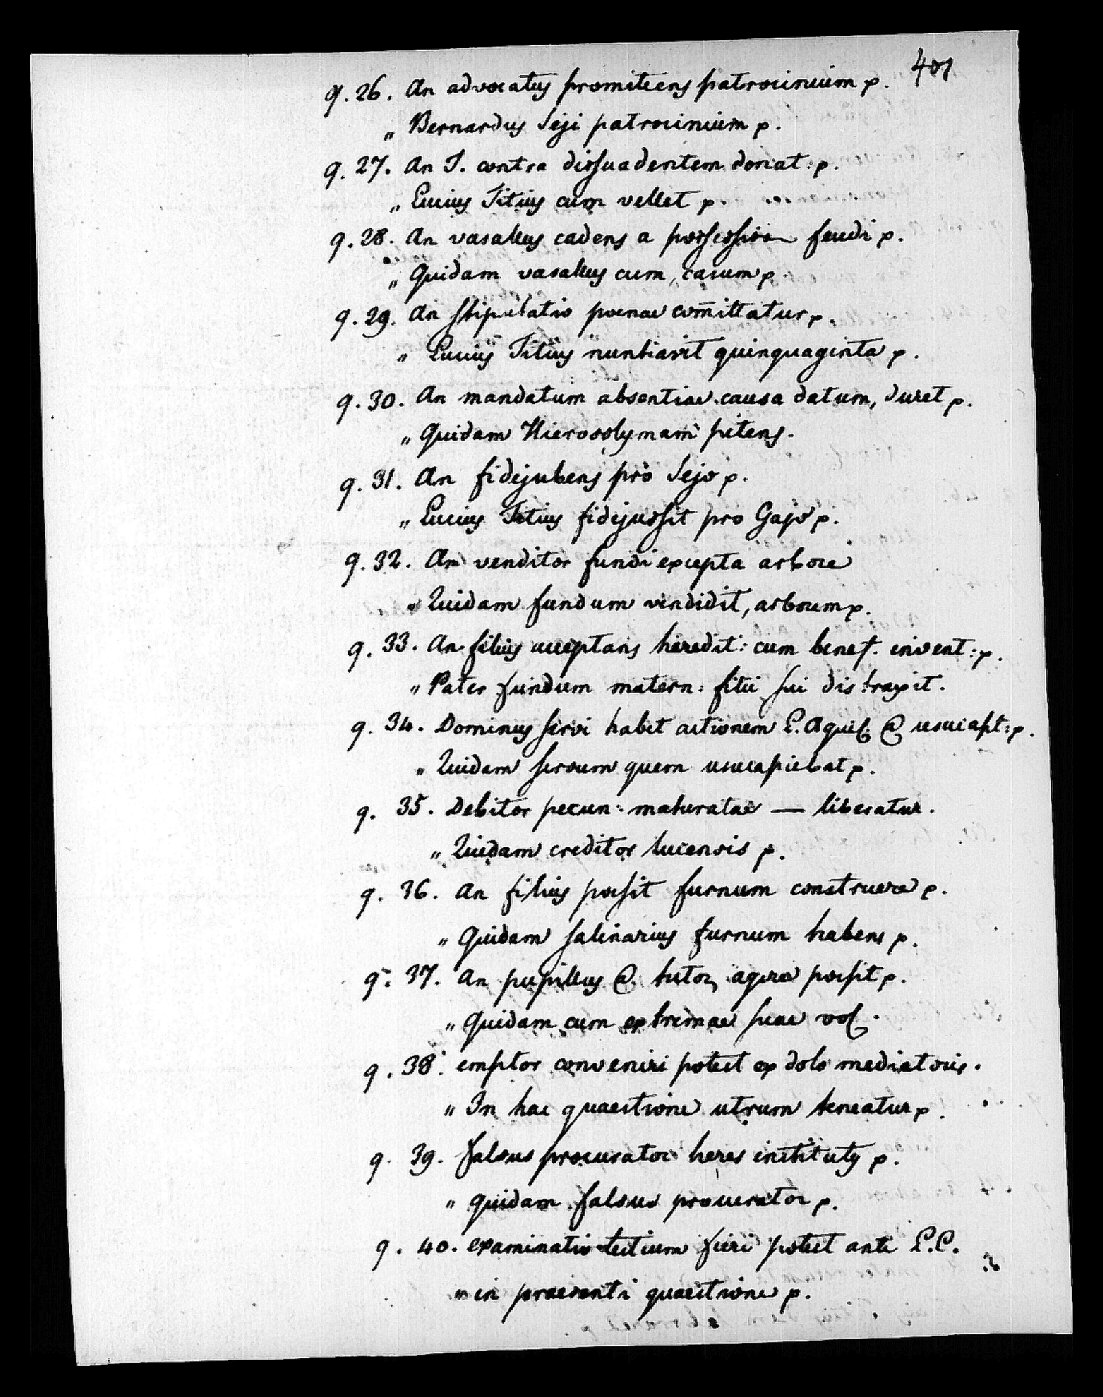 401
q. 26. An advocatus promittens patrocinium p.
„ Bernardus Seji patrocinium p.
q. 27. An T. contra dissuadentem donat: p.
„ Lucius Titius cum vellet p.
q. 28. An vasallus cadens a possession feudi p.
„ Quidam vasallus cum, casum p.
q. 29. An stipulatio poenae com̄ittatur p.
„ Lucius Titius nuntiavit quinquaginta p.
q. 30. An mandatum absentiae causa datum, duret p.
„ Quidam Hierosolymam petens.
q. 31. An fidejubens pro Sejo p.
„ Lucius Titius fidejussit pro Gajo p.
q. 32. An venditor fundi excepta arbore
„ Quidam fundum vendidit, arborum p.
q. 33. An filius acceptans heredit: cum benef. invent: p.
„ Pater fundum matern: filii sui distraxit.
q. 34. Dominus servi habet actionem L. Aquil. @ usucapt: p.
„ Quidam servum quem usucapiebat p.
q. 35. Debitor pecun: maturatae — liberatur.
„ Quidam creditor lucensis p.
q. 36. An filius possit furnum construere p.
„ Quidam salinarius furnum habens p.
q. 37. An pupillus @ tutor agere possit p.
„ Quidam cum extremae suae vol.
q. 38. emptor conveniri potest ex dolo mediatoris.
„ In hac quaestione utrum teneatur p.
q. 39. falsus procurator heres institutus p.
„ quidam falsus procurator p.
q. 40. examinatio testium fieri potest ante L.C.
„ in praesenti quaestione p.